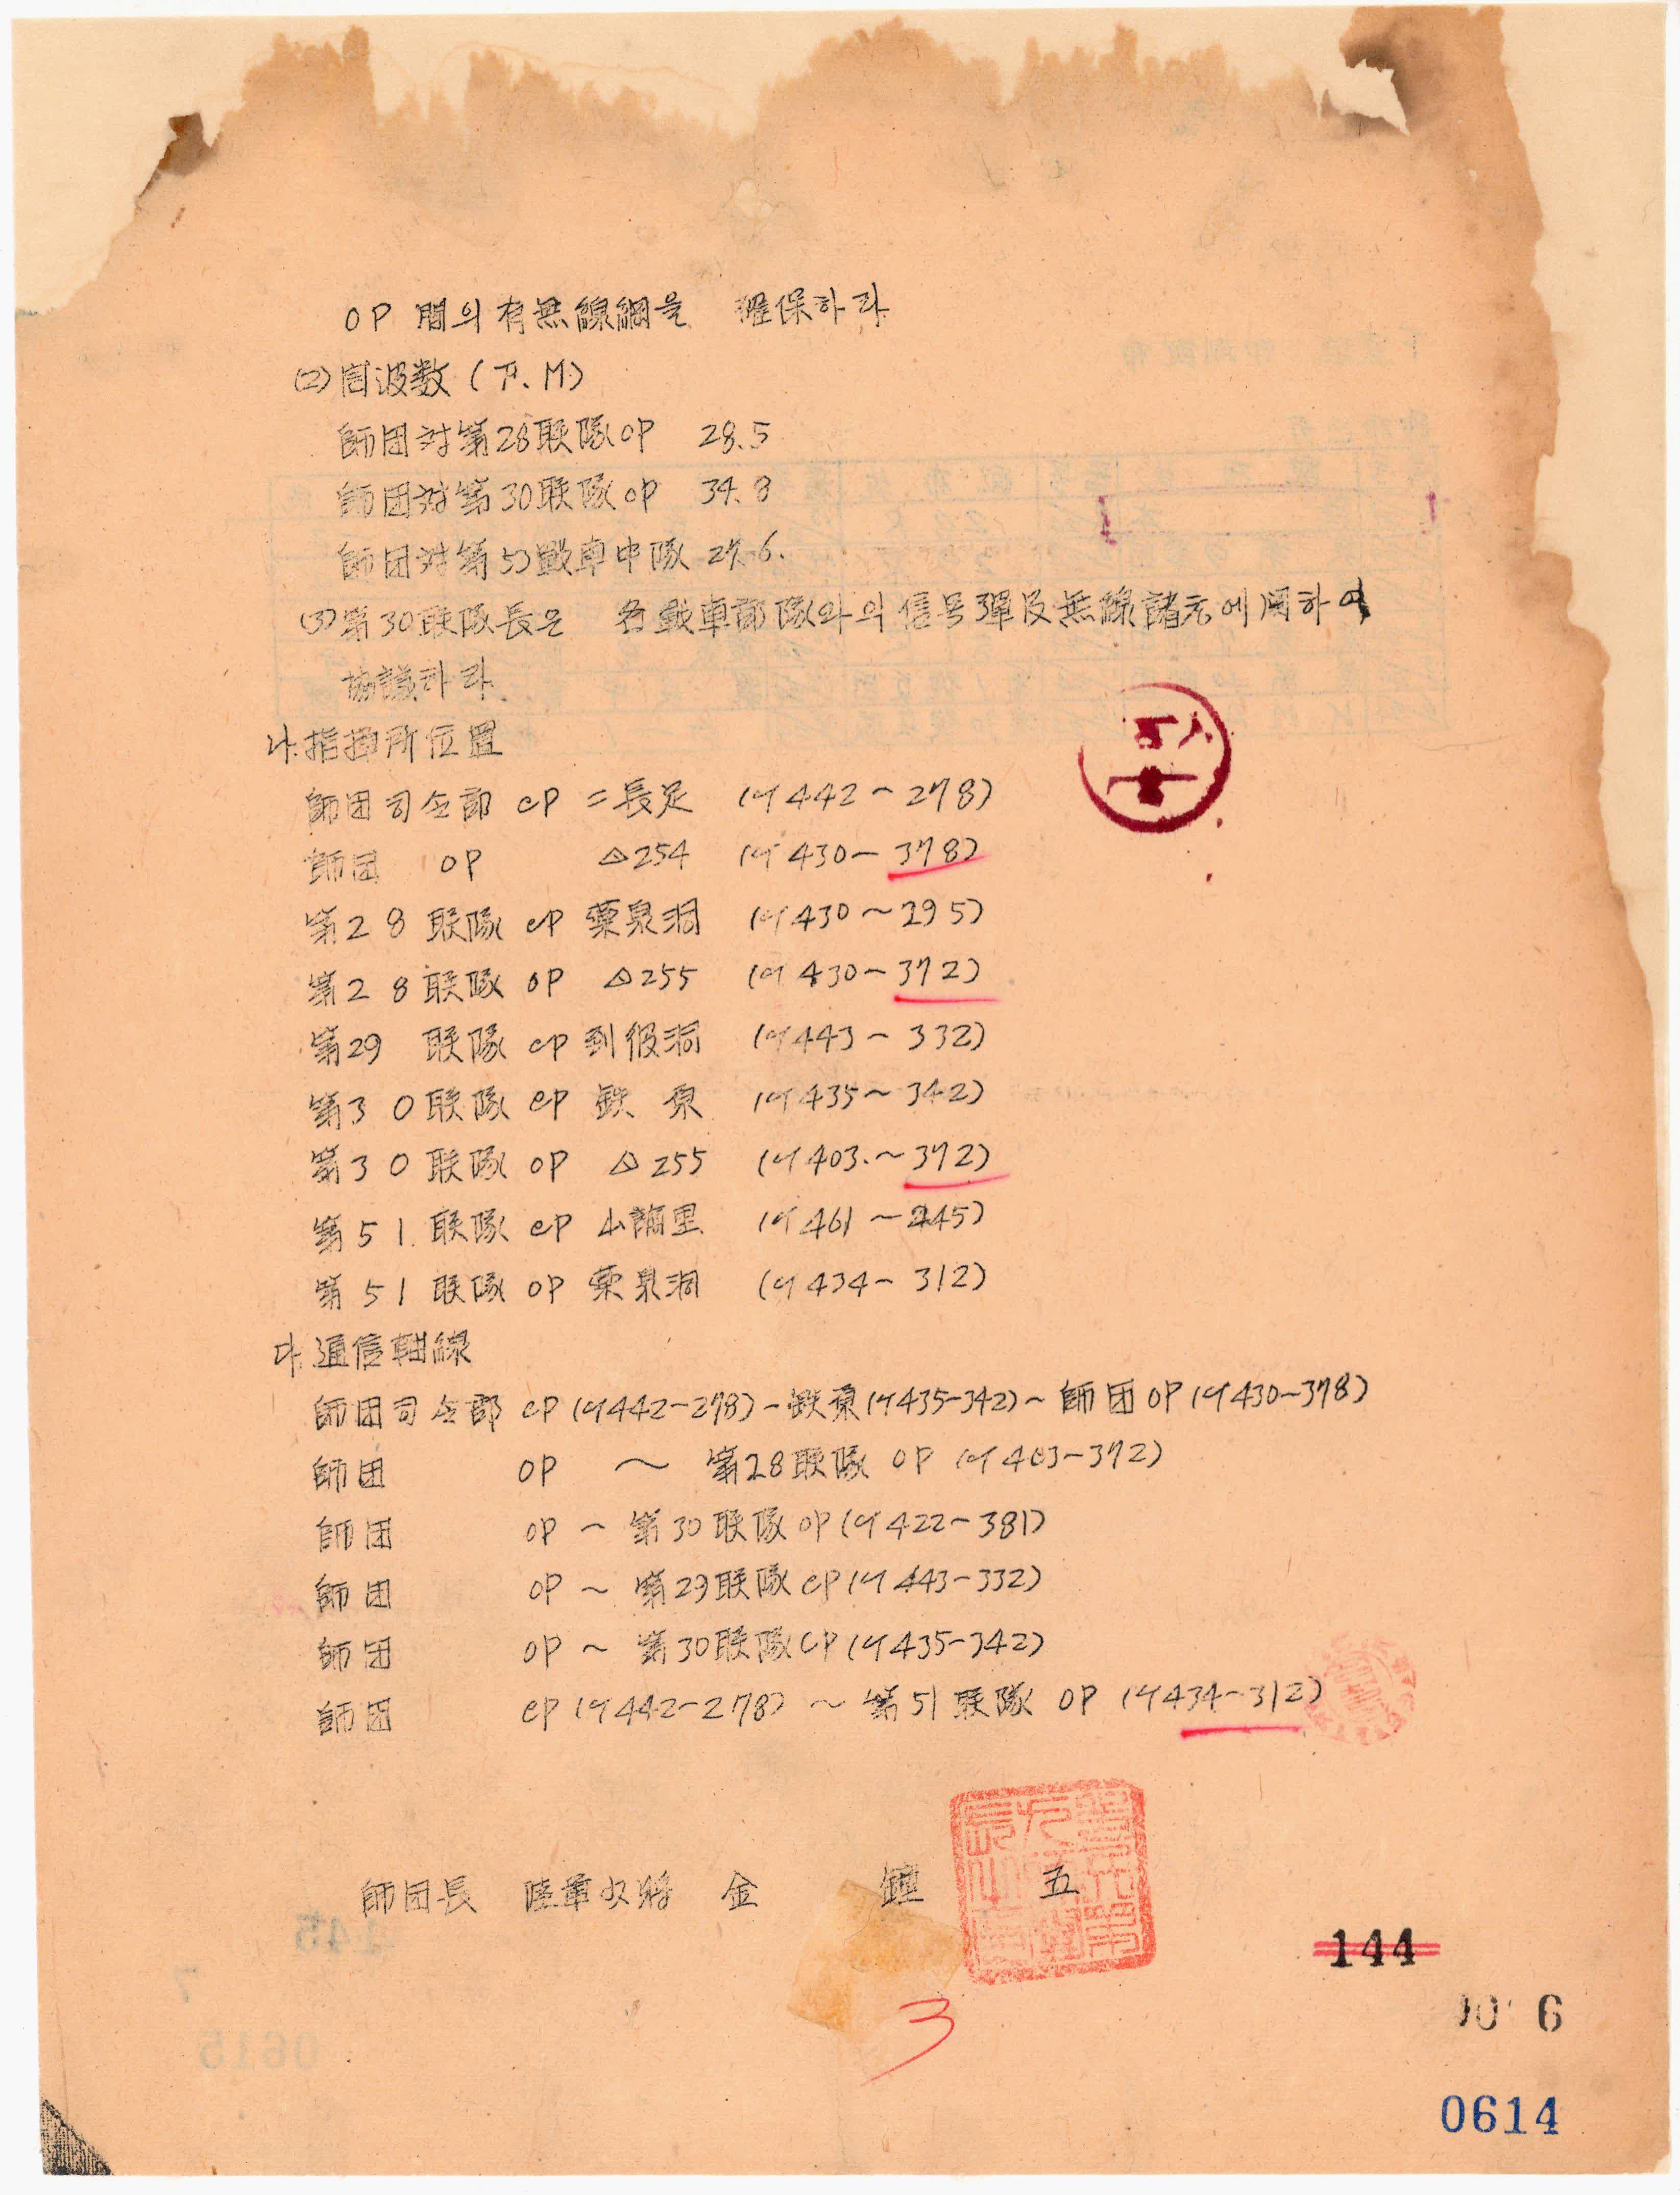 OP 間의 有無線網을 確保하라
(2) 周波数 (F.M)
師団対第28联隊OP 28.5
師団対第30联隊OP 34.8
師団対第53戰車中隊 27.6.
(3) 第30联隊長은 各戰車部隊와의 信号彈及無線諸元에 関하여
協議하라
나. 指揮所位置
師団司令部 CP 二長足 (ㄱ442~278)
師団 OP △254 (ㄱ430-378)
第28联隊 CP 栗泉洞 (ㄱ430~295)
第28联隊 OP △255 (ㄱ430-372)
第29 联隊 CP 到假洞 (ㄱ443-332)
第30联隊 CP 鉄原 (ㄱ435~342)
第30联隊 OP △255 (ㄱ403.~372)
第51.联隊 CP (ㄱ461~245)
第51联隊 OP 栗泉洞 (ㄱ434-312)
다. 通信軸線
師団司令部 CP (ㄱ442-278)-鉄原(ㄱ435-342)~師団OP(ㄱ430-378)
師団 OP ~ 第28联隊 OP (ㄱ403-372)
師団 OP ~ 第30联隊OP(ㄱ422-381)
師団 OP ~ 第29联隊CP(ㄱ443-332)
師団 OP ~ 第30联隊CP(ㄱ435-342)
師団 CP (ㄱ442-278) ~ 第51联隊 OP (ㄱ434-312)
師団長 陸軍少将 金 鐘 五
3
144
6
0614